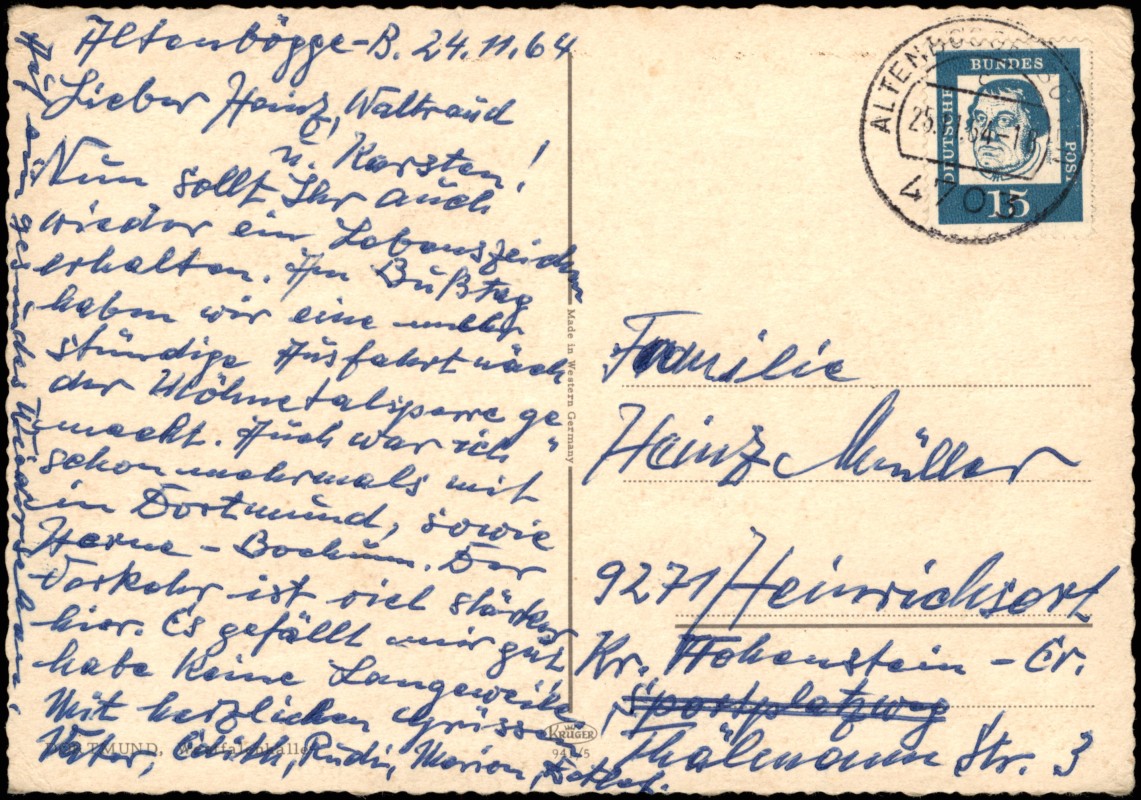 Altenbögge-B. 24.11.64
Lieber Heinz, Waltraud
u. Karsten!
Nun sollt Ihr auch
wieder ein Lebenszeichen
erhalten. Am Bußtag
haben wir eine mehr
stündige Ausfahrt nach
der Möhnetalsperre ge
macht. Auch war ich
schon mehrmals mit
in Dortmund, sowie
Herne - Bochum. Der
Verkehr ist viel stärker
hier. Es gefällt mir gut
habe keine Langeweile
Mit herzlichen Grüssen
Vater, Edith, Rudi, Marion, Detlef.
Auf ein gesundes Wiedersehen!
DORTMUND, Westfalenhalle
Made in Western Germany
KRÜGER
DEUTSCHE
BUNDES
POST
15
ALTENBÖGGE-BÖ
25.11.64-18
4703
Familie
Heinz Müller
9271/Heinrichsort
Kr. Hohenstein-Er.
Sportplatzweg
Thälmann Str. 3